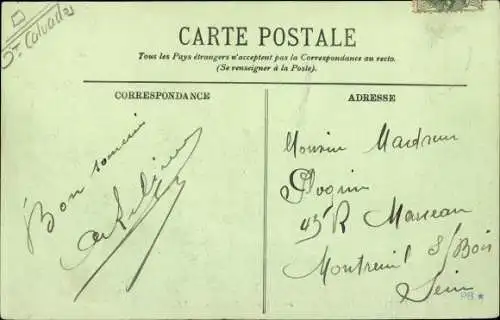 Dt Calvados
CARTE POSTALE
Tous les Pays étrangers n'acceptent pas la Correspondance au recto.
(Se renseigner à la Poste).
CORRESPONDANCE
ADRESSE
Bon souvenir
Monsieur
45 R Marceau
Montreuil s/Bois
Seine
PB